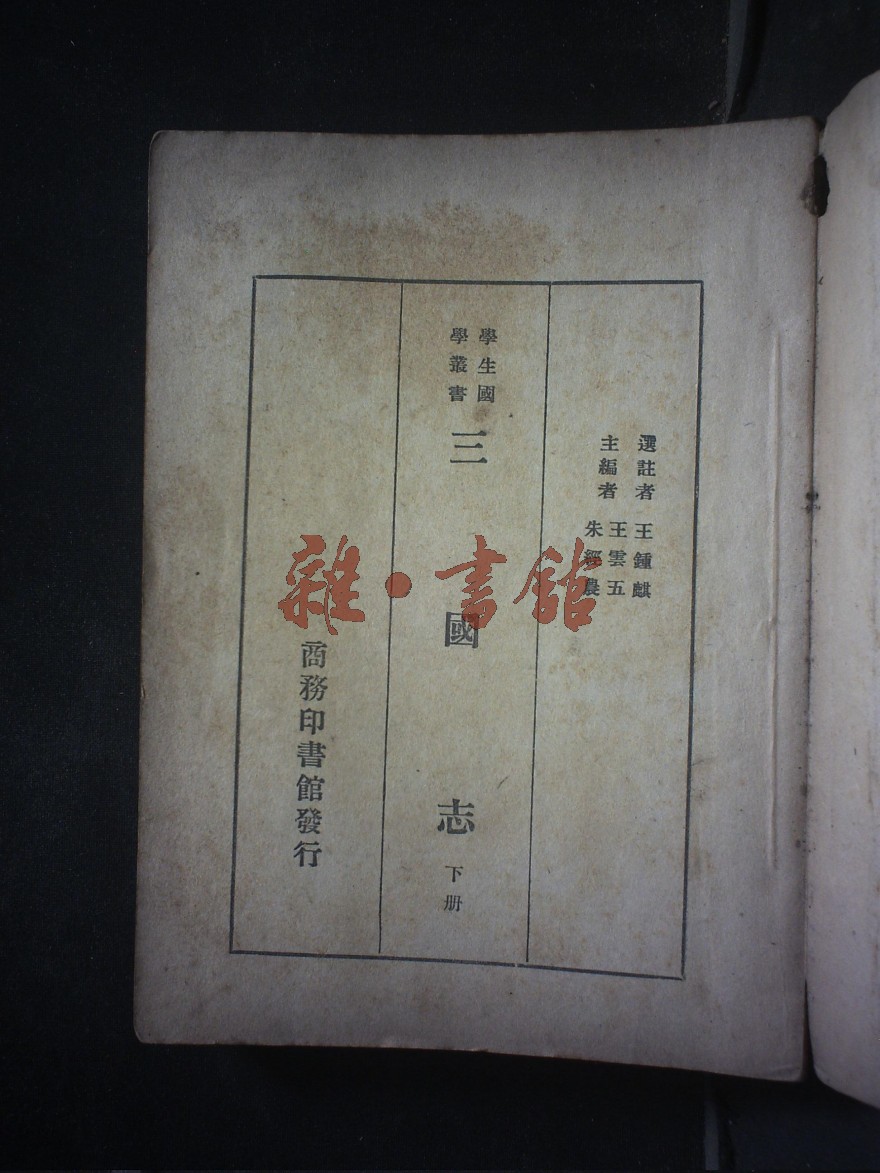 選註者 王鍾麒
主編者 王雲五
朱經農
學生國
學叢書
三國志 下册
商務印書館發行
雜·書館